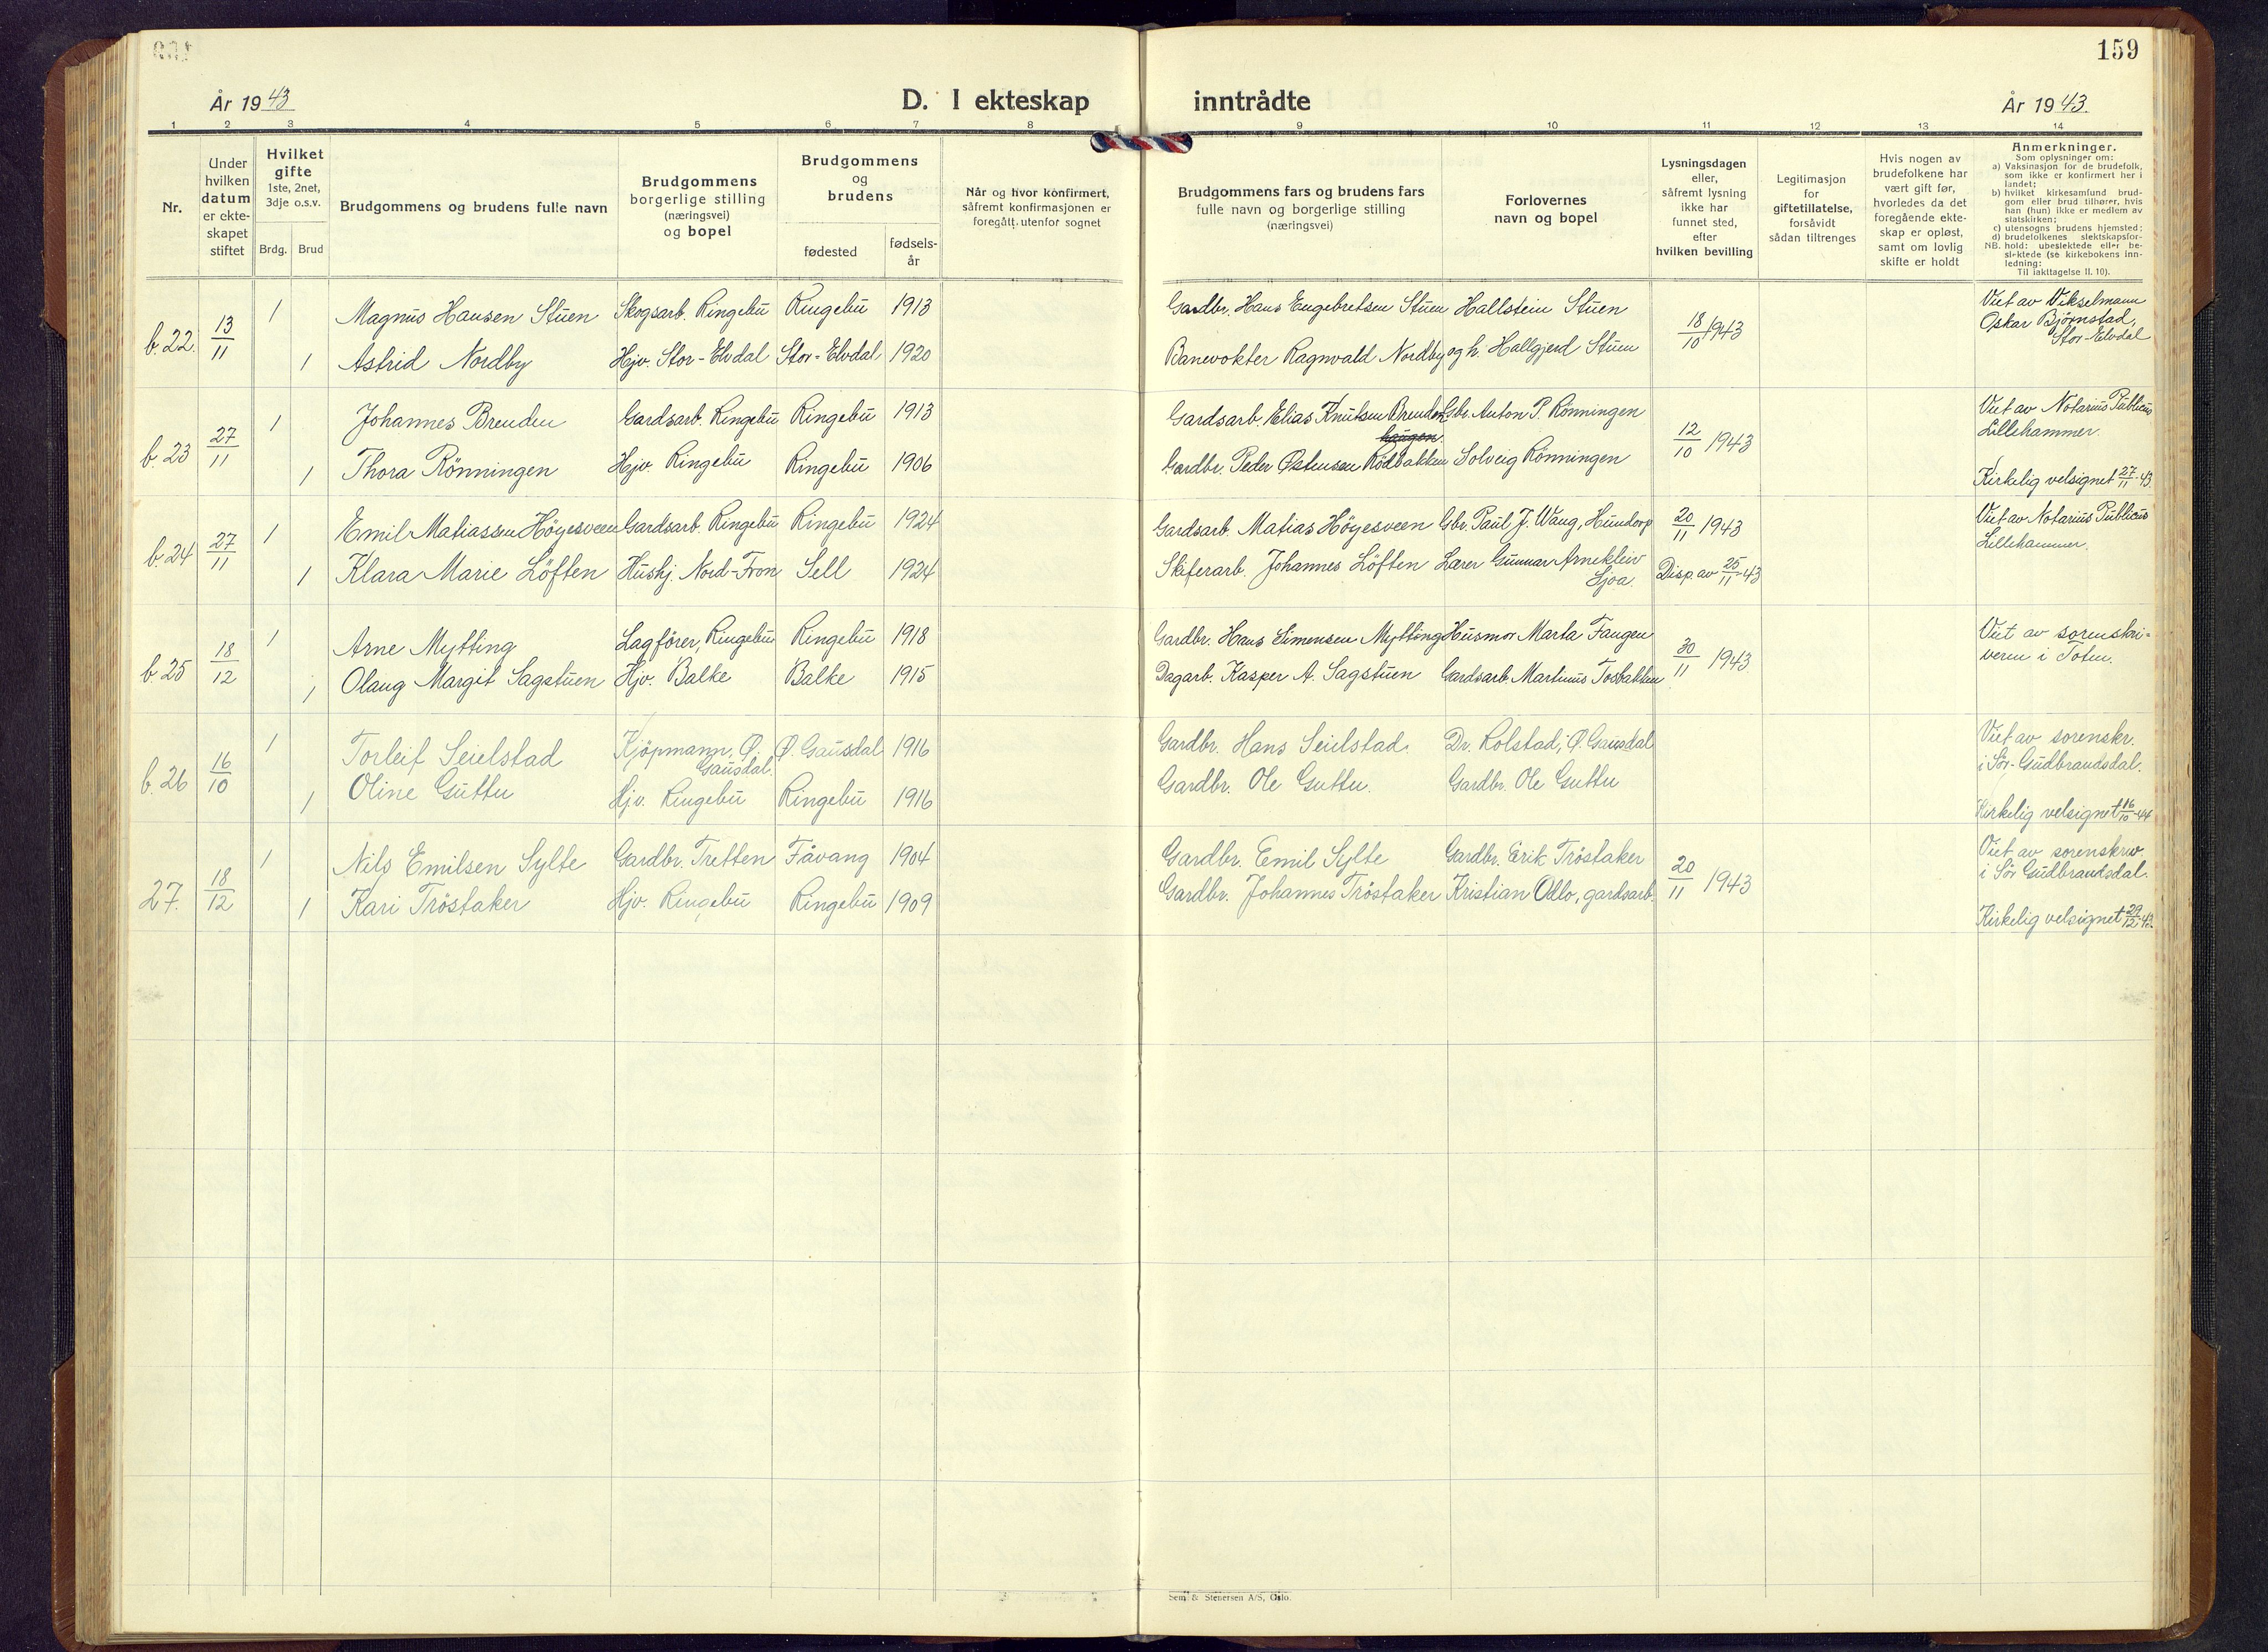 159
År 1943
D. I ekteskap inntrådte
År 1943.
1 2 3 4 5 6 7 8 9 10 11 12 13 14
Nr.
Under
hvilken
datum
er ekte-
skapet
stiftet
Hvilket
gifte
1ste, 2net,
3dje o.s.v.
Brdg. Brud
Brudgommens og brudens fulle navn
Brudgommens
borgerlige stilling
(næringsvei)
og bopel
Brudgommens
og
brudens
fødested
fødsels-
år
Når og hvor konfirmert,
såfremt konfirmasjonen er
foregått utenfor sognet
Brudgommens fars og brudens fars
fulle navn og borgerlige stilling
(næringsvei)
Forlovernes
navn og bopel
Lysningsdagen
eller,
såfremt lysning
ikke har
funnet sted,
efter
hvilken bevilling
Legitimasjon
for
giftetillatelse,
forsåvidt
sådan tiltrenges
Hvis nogen av
brudefolkene har
vært gift før,
hvorledes da det
foregående ekte-
skap er opløst,
samt om lovlig
skifte er holdt
Anmerkninger.
Som oplysninger om:
a) Vaksinasjon for de brudefolk,
som ikke er konfirmert her i
landet;
b) hvilket kirkesamfund brud-
gom eller brud tilhører, hvis
han (hun) ikke er medlem av
statskirken;
c) utensogns brudens hjemsted;
d) brudefolkenes slektskapsfor-
NB. hold: ubeslektede eller be-
slektede (se kirkebokens inn-
ledning:
Til iakttagelse II. 10).
b. 22. 13/11 1 Magnus Hansen Stuen Skogsarb. Ringebu Ringebu 1913 Gardbr. Hans Engebretsen Stuen Hallstein Stuen 18/10 1943 Viet av Vikselmann
Oskar Bjørnstad,
Stor-Elvdal
1 Astrid Nordby Hjv. Stor-Elvdal Stor-Elvdal 1920 Banevokter Ragnvald Nordby og h. Hallgjerd Stuen
b. 23 27/11 1 Johannes Brenden Gardsarb. Ringebu Ringebu 1913 Gardsarb. Elias Knutsen Brenden Gbr. Anton P. Rönningen 12/10 1943 Viet av Notarius Publicus
haugen. Lillehammer.
1 Thora Rönningen Hjv. Ringebu Ringebu 1906 Gardbr. Peder Østensen Rödbakken Solveig Rönningen Kirkelig velsignet 27/11-43.
b. 24 27/11 1 Emil Matiassen Höyesveen Gardsarb. Ringebu Ringebu 1924 Gardsarb. Matias Höyesveen Gbr. Paul J. Waag, Hundorp 20/11 1943 Viet av Notarius Publicus
Lillehammer.
1 Klara Marie Löften Hushj. Nord-Fron Sell 1924 Skiferarb. Johannes Löften Lærer Gunnar Arnekleiv
Sjoa. Disp. av 25/11-43
b. 25 18/12 1 Arne Mytting Lagförer, Ringebu Ringebu 1918 Gardbr. Hans Simensen Mytting Husmor Marta Faugen 30/11 1943 Viet av sorenskri-
veren i Toten.
1 Olaug Margit Sagstuen Hjv. Balke Balke 1915 Dagarb. Kasper A. Sagstuen Gardsarb. Martinus Tosbakken
b. 26 16/10 1 Torleif Seielstad Kjöpmann, Ø.
Gausdal. Ø. Gausdal 1916 Gardbr. Hans Seielstad. Dr. Kolstad, Ø. Gausdal Viet av sorenskr.
i Sör-Gudbrandsdal.
1 Oline Guttu Hjv. Ringebu Ringebu 1916 Gardbr. Ole Guttu. Gardbr. Ole Guttu Kirkelig velsignet 16/10-44
27. 18/12 1 Nils Emilsen Sylte Gardbr. Tretten Fåvang 1904 Gardbr. Emil Sylte Gardbr. Erik Tröstaker 20/11 1943 Viet av sorenskriv.
i Sör Gudbrandsdal.
1 Kari Tröstaker Hjv. Ringebu Ringebu 1909 Gardbr. Johannes Tröstaker Kristian Odlo, gardsarb. Kirkelig velsignet 29/12-43.
Sem & Stenersen A/S, Oslo.